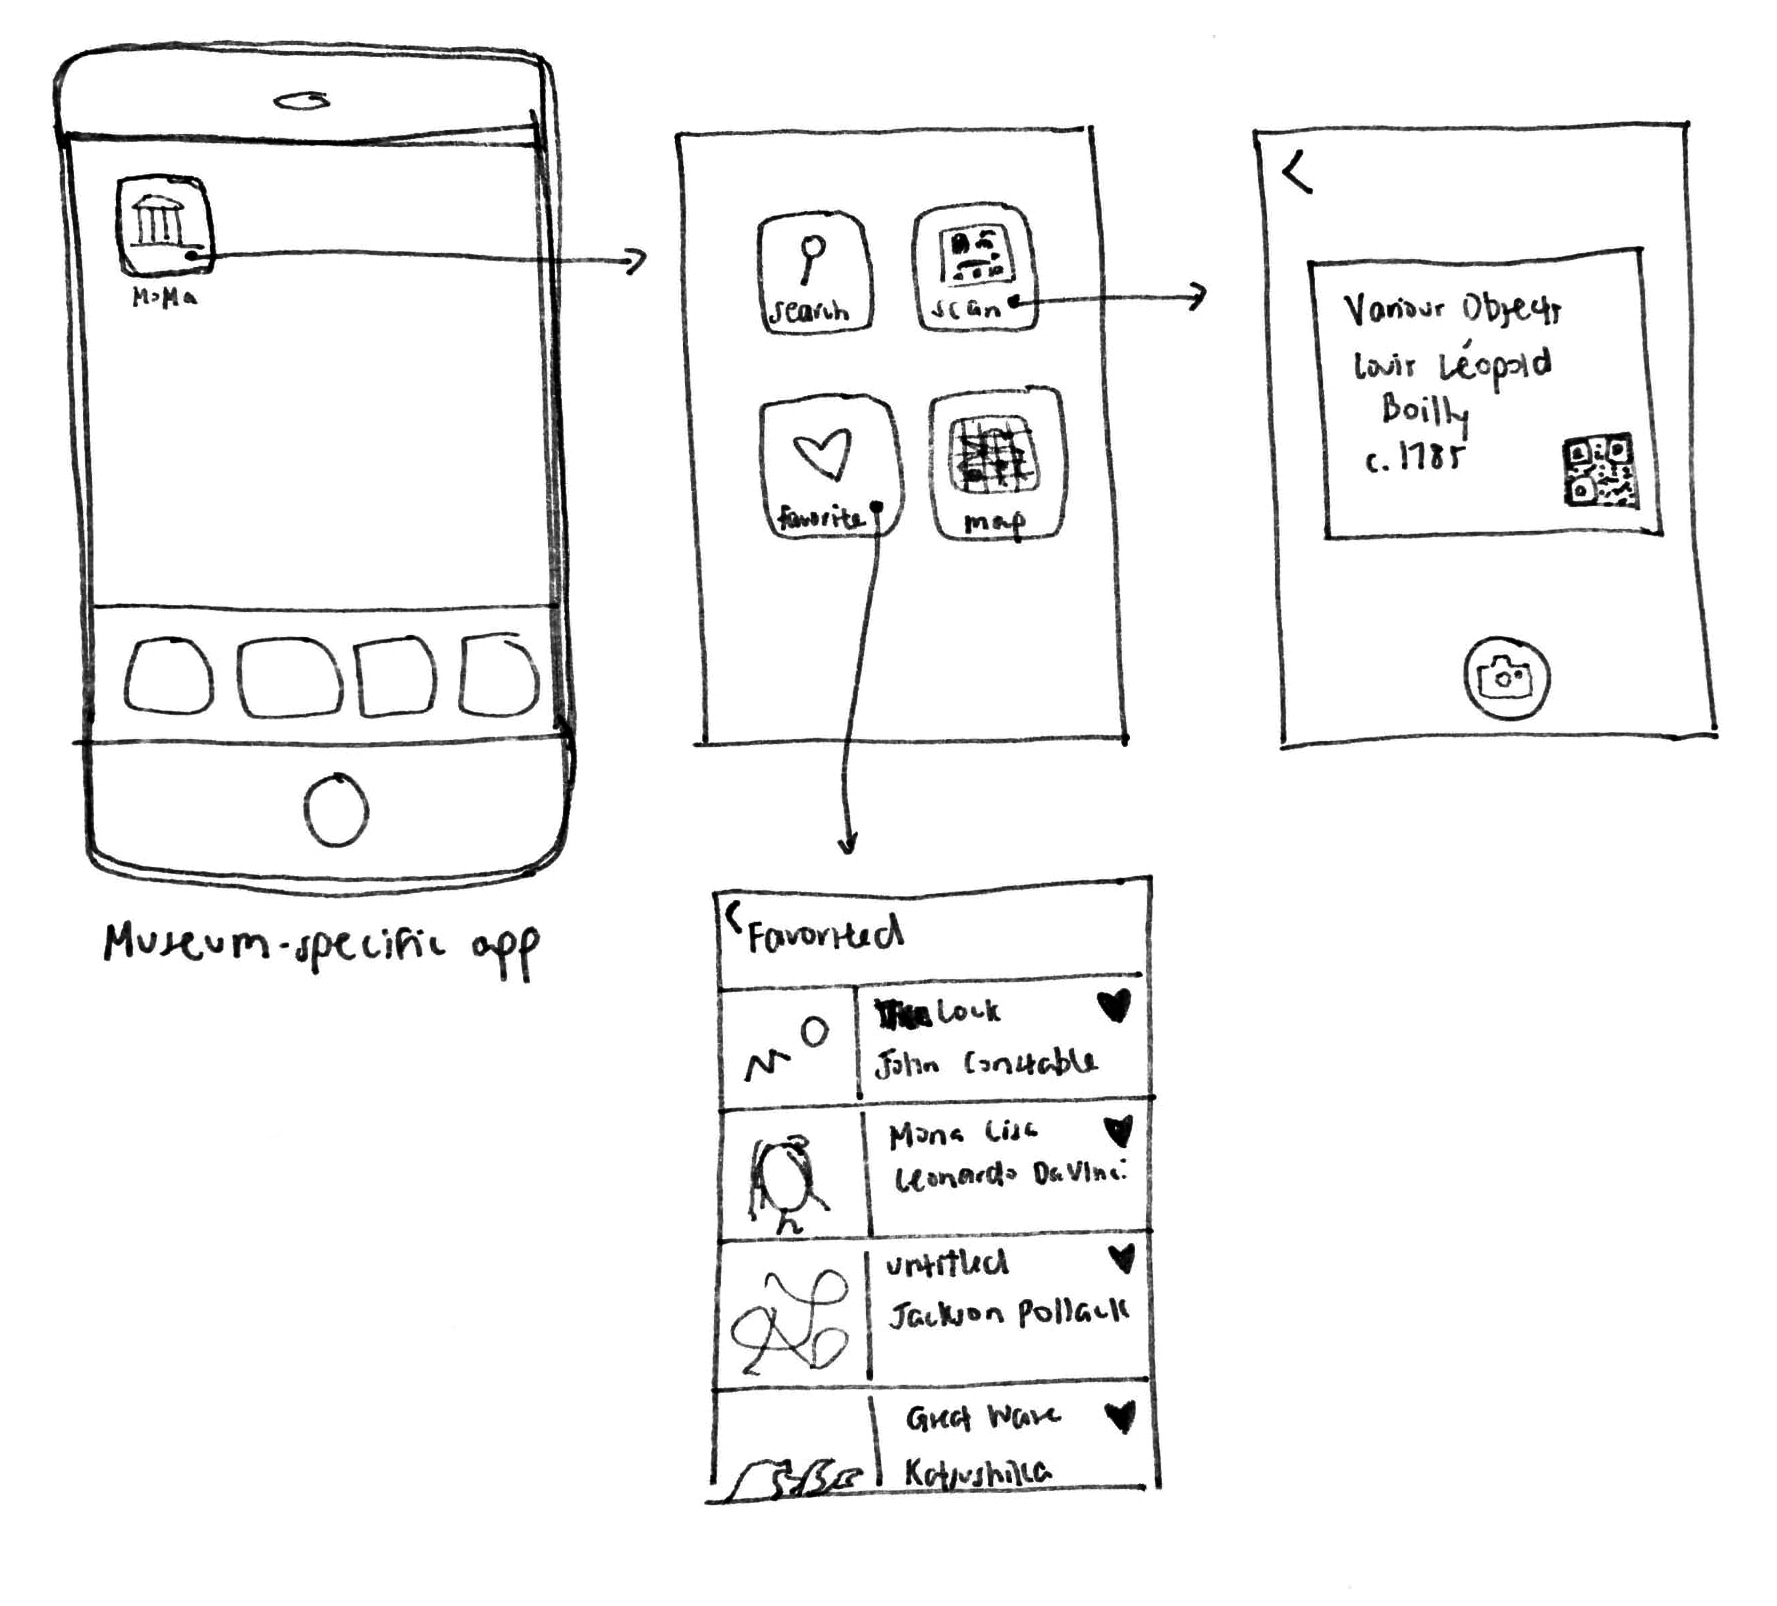 MoMa
Museum-specific app
search
scan
favorite
map
Various Objects
Louis Léopold
Boilly
c. 1785
Favorited
Lock
John Constable
Mona Lisa
Leonardo DaVinci
untitled
Jackson Pollack
Great Wave
Katsushika